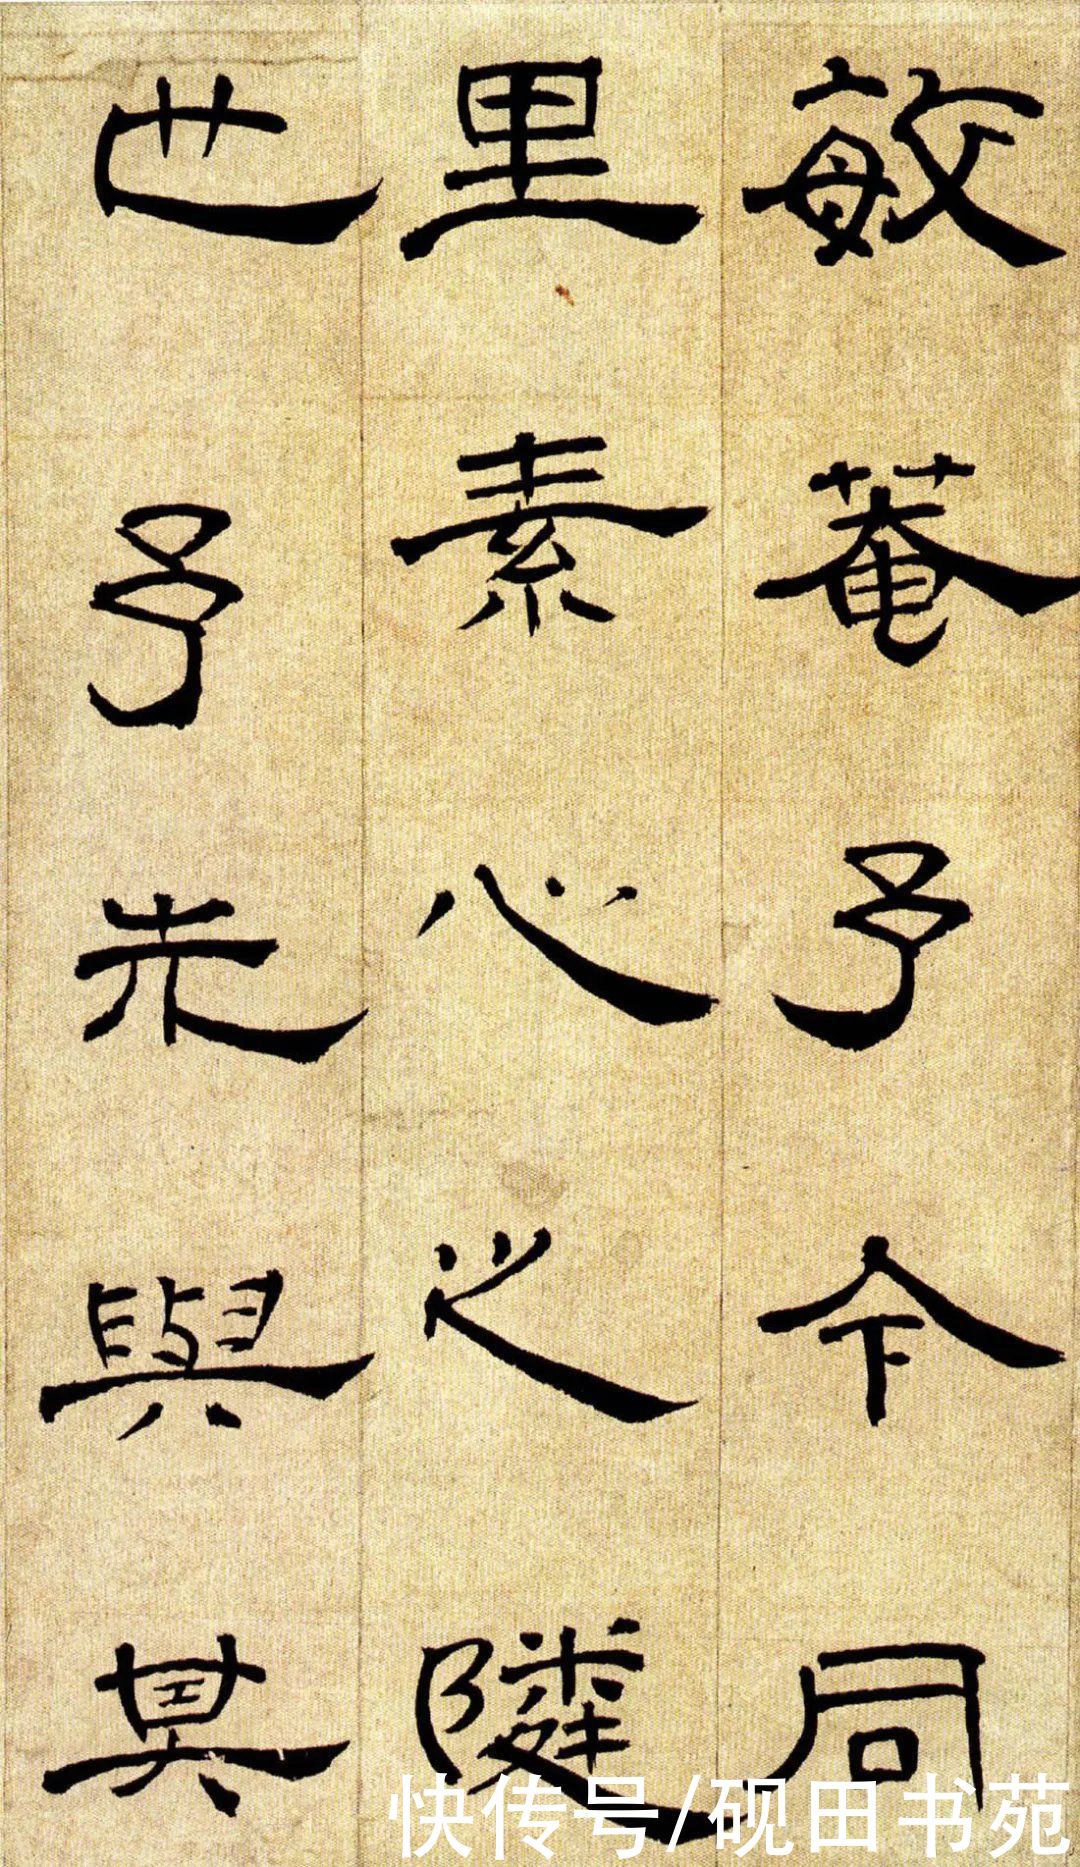 敏菴予今同
里素心之隣
也予先與其
快传号/砚田书苑